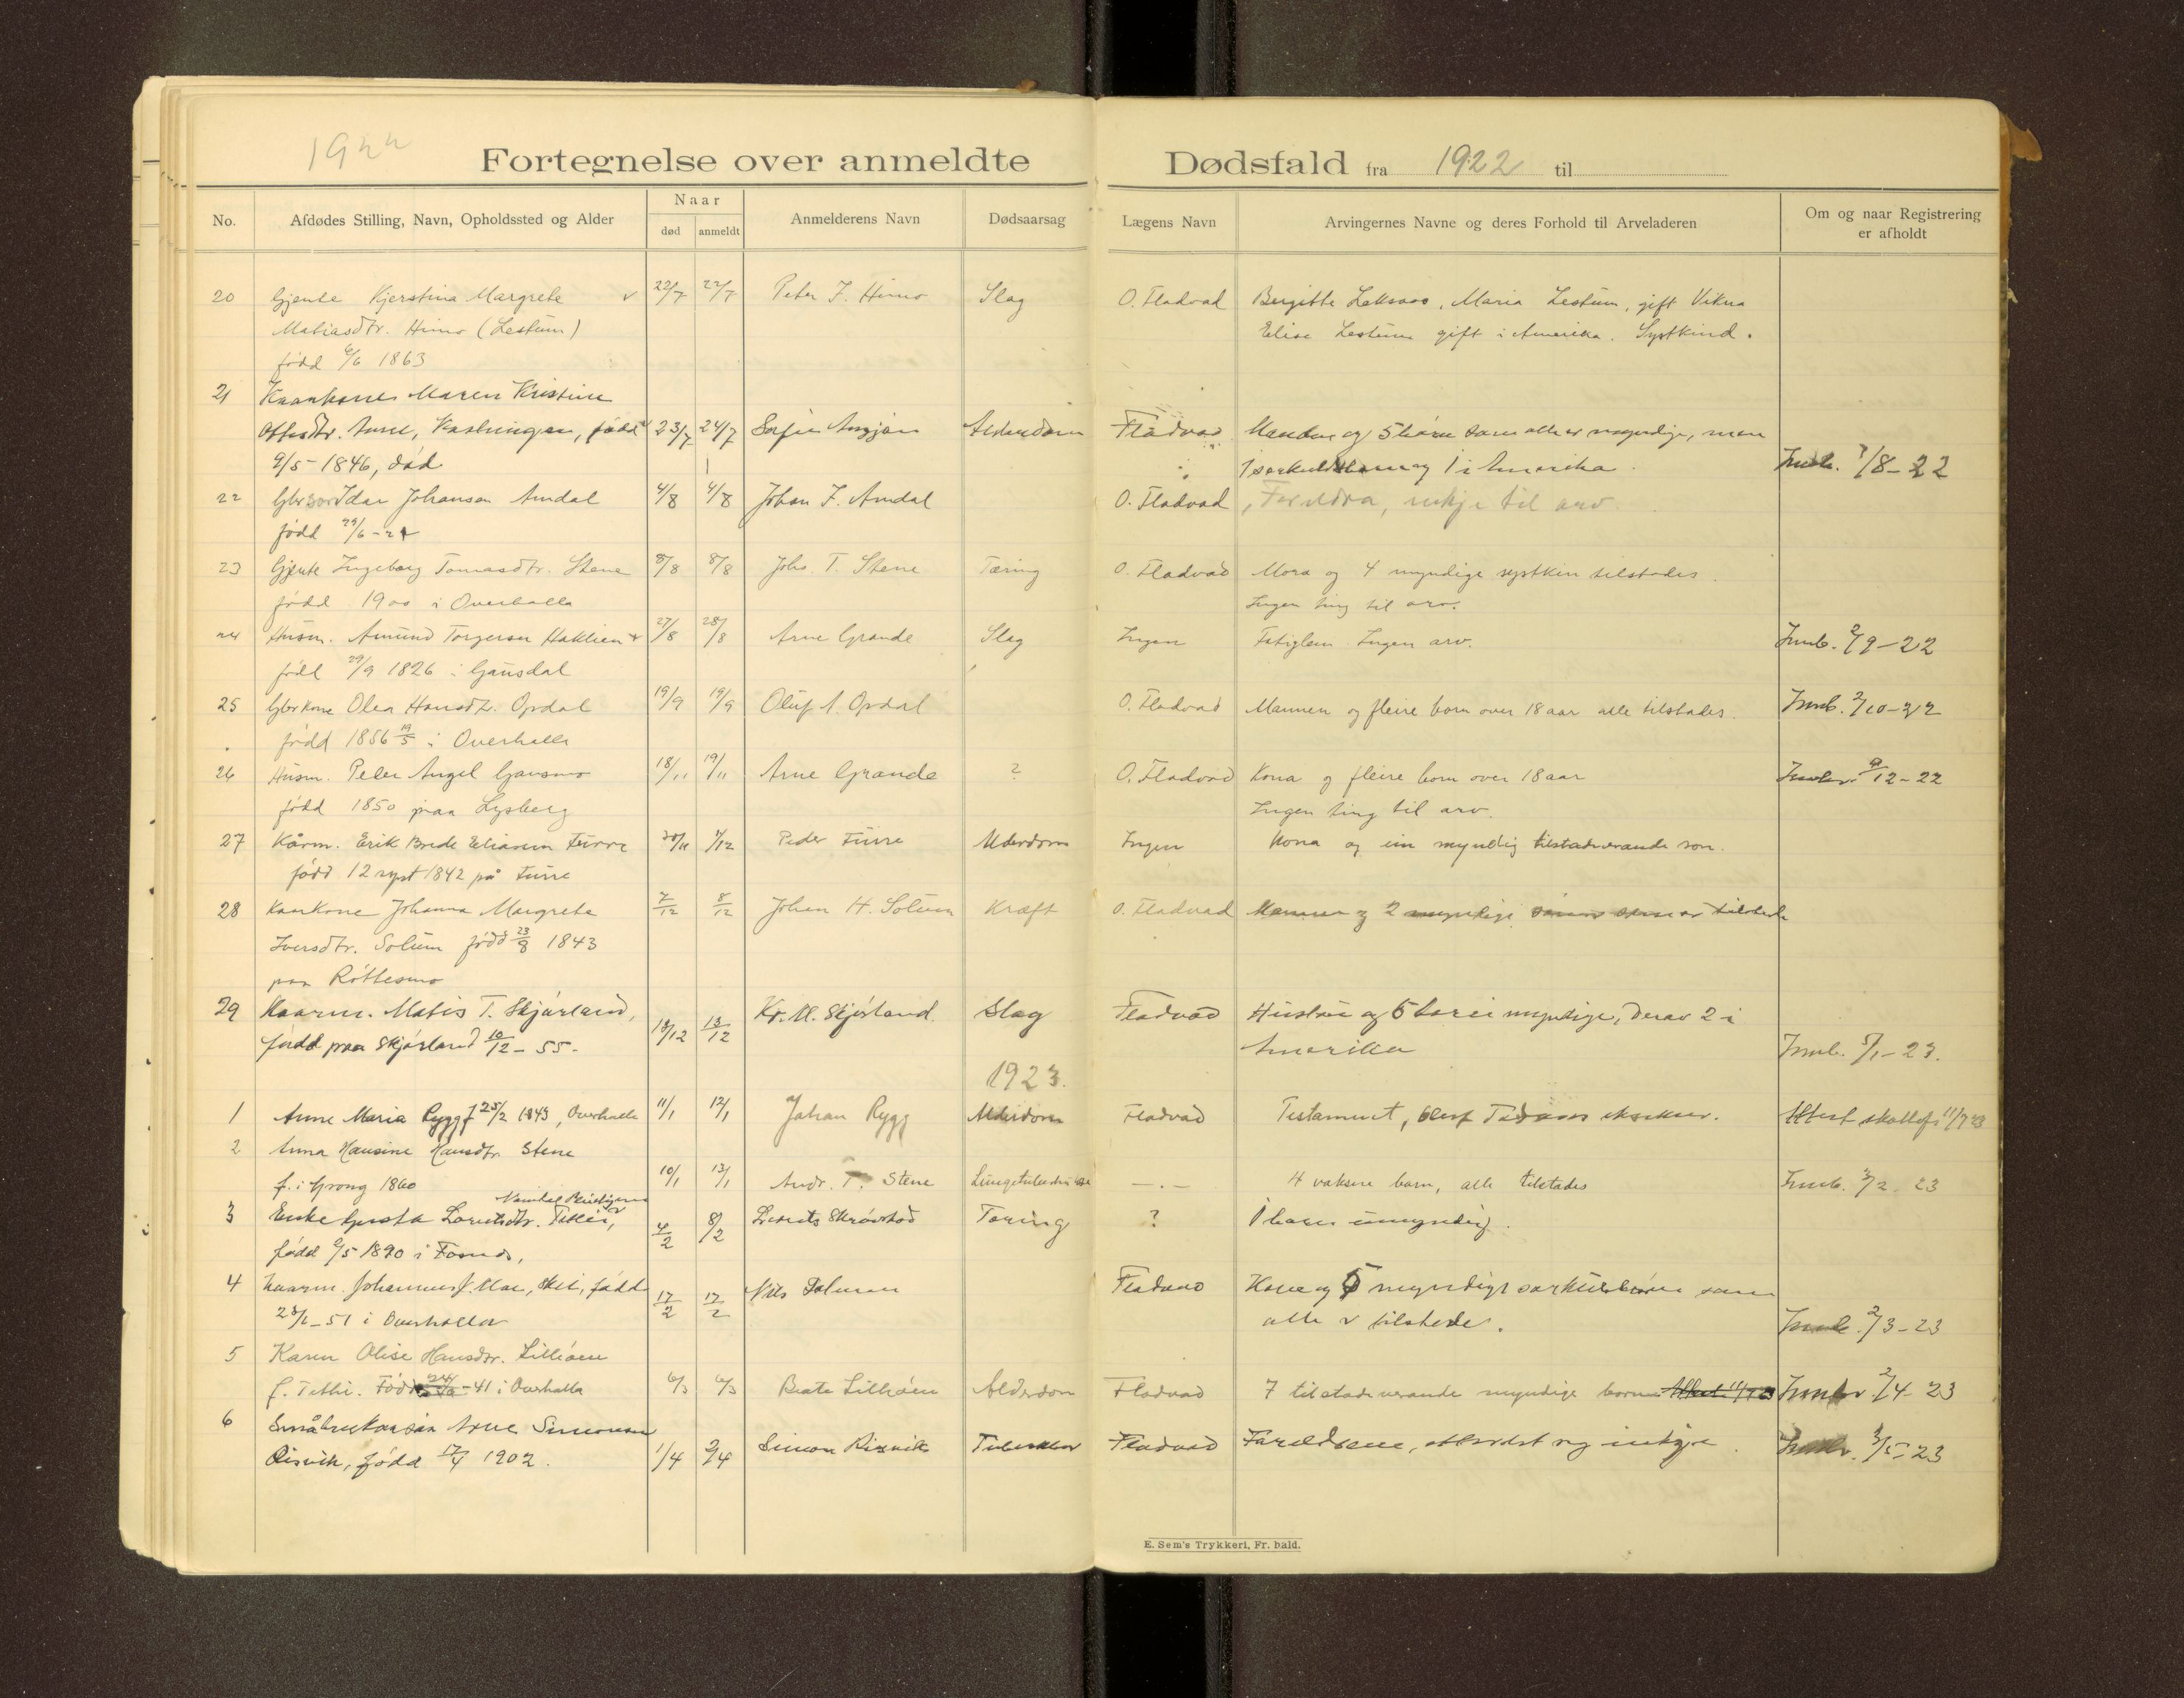 1922
Fortegnelse over anmeldte Dødsfald fra 1922 til
No. Afdødes Stilling, Navn, Opholdssted og Alder Naar død anmeldt Anmelderens Navn Dødsaarsag Lægens Navn Arvingernes Navne og deres Forhold til Arveladeren Om og naar Registrering er afholdt
20 Gjente Kjerstina Margrete 22/7 22/7 Peter J. Himo Slag O. Fladvad Bergitte Leksaas, Maria Lestum, gift Vikna
Matiasdtr. Himo (Lestum) Elise Lestum gift i Amerika. Systkind.
född 6/6 1863
21 Kaarkone Maren Kristine
Ottesdtr. född 23/7 24/7 Sofie Amdam Alderdom Fladvad Manden og 5 som alle er myndige, men
9/5-1846, död 1 og 1 i Amerika. Innb. 7/8-22
22 Gbr.son Idar Johansen Amdal 4/8 4/8 Johan J. Amdal O. Fladvad Foreldra, inkje til arv.
född 29/6-22
23 Gjente Ingeborg Tomasdtr. Stene 8/8 8/8 Johs. T. Stene Tæring O. Fladvad Mora og 4 myndige systkin tilstades.
född 1900 i Overhalla Ingen ting til arv.
24 Husm. Amund Torgersen Haklien 27/8 28/8 Arne Grande Slag Ingen Fatiglem. Ingen arv. Innb. 2/9-22
född 29/9 1826 i Gausdal
25 Gbr kone Olea Hansdt. Opdal 19/9 19/9 Oluf A. Opdal O. Fladvad Mannen og fleire born over 18 aar alle tilstades. Innb. 2/10-22
född 1856 19/5 i Overhalla
26 Husm. Peter Angel Gansmo 18/11 19/11 Arne Grande ? O. Fladvad Kona og fleire born over 18 aar 9/12-22
född 1850 paa Lysberg Ingen ting til arv.
27 Kårm. Erik Brede Eliasen Furre 30/11 4/12 Peder Furre Alderdom Ingen Kona og ein myndig tilstadverande son.
född 12 sept 1842 på Furre
28 Kaarkone Johanna Margrete 7/12 8/12 Johan H. Solum Kræft O. Fladvad Mannen og 2 myndige som er tilstede
Iversdtr. Solum född 23/8 1843
paa Röttesmo
29 Kaarm. Matis T. Skjörland, 13/12 13/12 Kr. M. Skjörland. Slag Fladvad Hustru og 5 myndige, derav 2 i
född paa Skjörland 10/12-55. Amerika Innb. 5/1-23.
1923.
1 Anne Maria Rygg f 25/2 1843, Overhalla 11/1 12/1 Johan Rygg Alderdom Fladvad Testament,
2 Anna Hansine Hansdtr. Stene
f. i Grong 1860 10/1 13/1 Andr. T. Stene —.— 4 vaksne born, alle tilstades Innb. 3/2.23
3 Enke Gusta Lorntsdtr. 4/2 8/2 Lornts Skrövstad Tæring ? 1 barn umyndig.
född 2/5 1890 i Fosnes,
4 Kaarm. Johannes J. Moe, född 17/2 17/2 Nils Fladvad Kone og 5 myndige som
-51 i Overhalla alle er tilstede. 2/3-23
5 Karen Olise Hansdtr. Lilliöen
f. Född -41 i Overhalla 6/3 6/3 Beate Lilliöen Alderdom Fladvad 7 tilstadeverande myndige born 2/4-23
6 Arne Simonsen
Risvik, född 17/4 1902. 1/4 2/4 Simon Risvik Fladvad Foreldrene, inkje. 3/5-23
E. Sem's Trykkeri, Fr. hald.